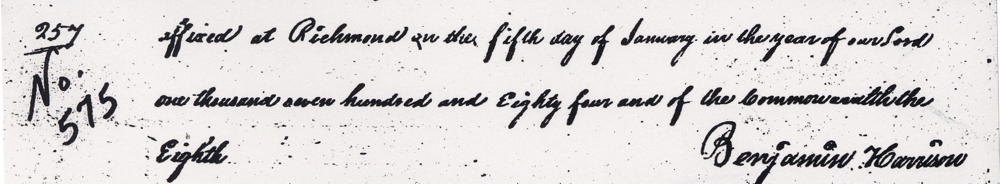 257
No.
575
affixed at Richmond on the fifth day of January in the year of our Lord
one thousand seven hundred and Eighty four and of the Commonwealth the
Eighth
Benjamin Harrison